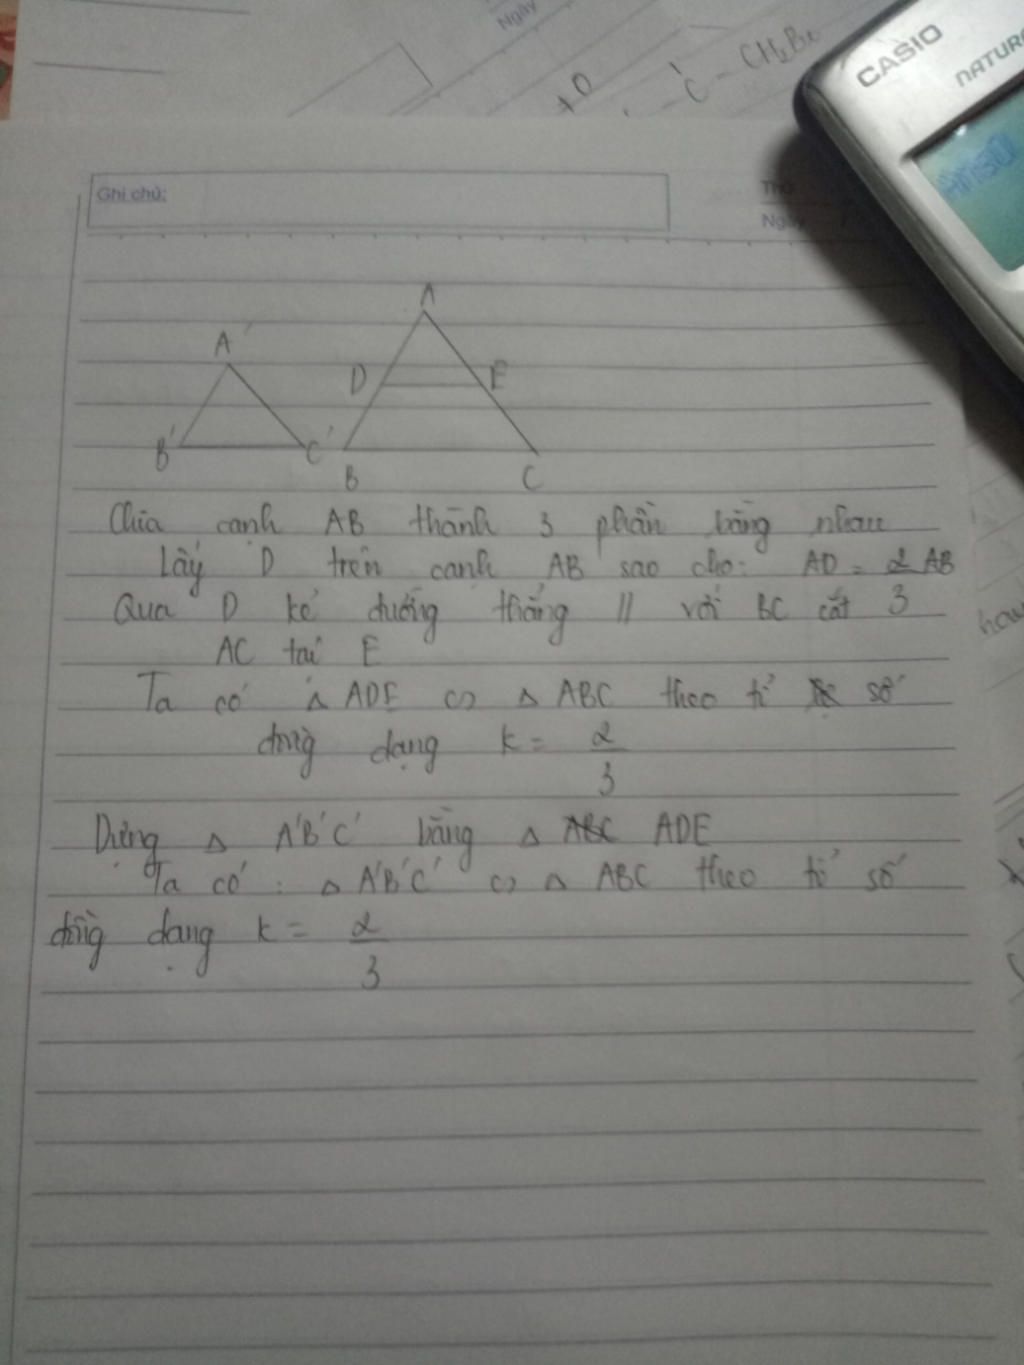 Ngày
+O
-C-CH₂Br
CASIO
NATURA
Ghi chú:
Thứ
Ngày
A
A'
D
E
B'
C'
B
C
Chia cạnh AB thành 3 phần bằng nhau
Lấy D trên cạnh AB sao cho: AD = 2/3 AB
Qua D kẻ đường thẳng // với BC cắt
AC tại E
Ta có △ ADE ∽ △ ABC theo tỉ số
đồng dạng k = 2/3
Dựng △ A'B'C' bằng △ ADE
Ta có: △ A'B'C' ∽ △ ABC theo tỉ số
đồng dạng k = 2/3